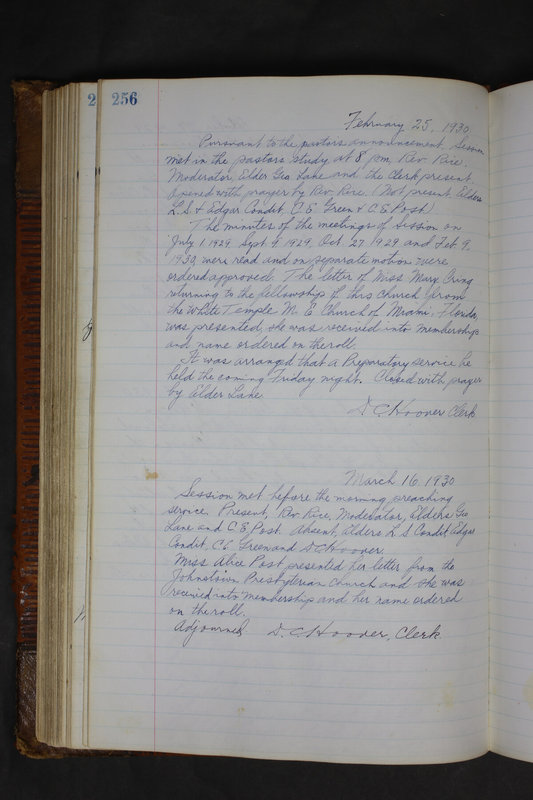 2 256
February 25, 1930
Pursuant to the pastors announcement Session
met in the pastors study at 8 pm, Rev. Rice
Moderator, Elder Geo Lane and the Clerk present
Opened with prayer by Rev. Rice. (Not present, Elders
L.S. & Edgar Condit, C.E. Green & C.E. Post)
The minutes of the meetings of Session on
July 1 1929, Sept 9, 1929, Oct. 27 1929 and Feb 9,
1930, were read and on separate motion were
ordered approved. The letter of Miss Mary
returning to the fellowship of this church from
the White Temple M. E Church of Miami, Florida,
was presented, she was received into membership
and name ordered on the roll.
It was arranged that a Preparatory service be
held the coming Friday night. Closed with prayer
by Elder Lane
D. C. Hoover Clerk
March 16, 1930
Session met before the morning preaching
service. Present, Rev. Rice, Moderator, Elders Geo
Lane and C.E. Post. Absent, Elders L. S Condit, Edgar
Condit, C.E. Green and D C Hoover.
Miss Alice Post presented her letter from the
Johnstown Presbyterian Church and she was
received into membership and her name ordered
on the roll.
Adjourned D. C. Hoover, Clerk.